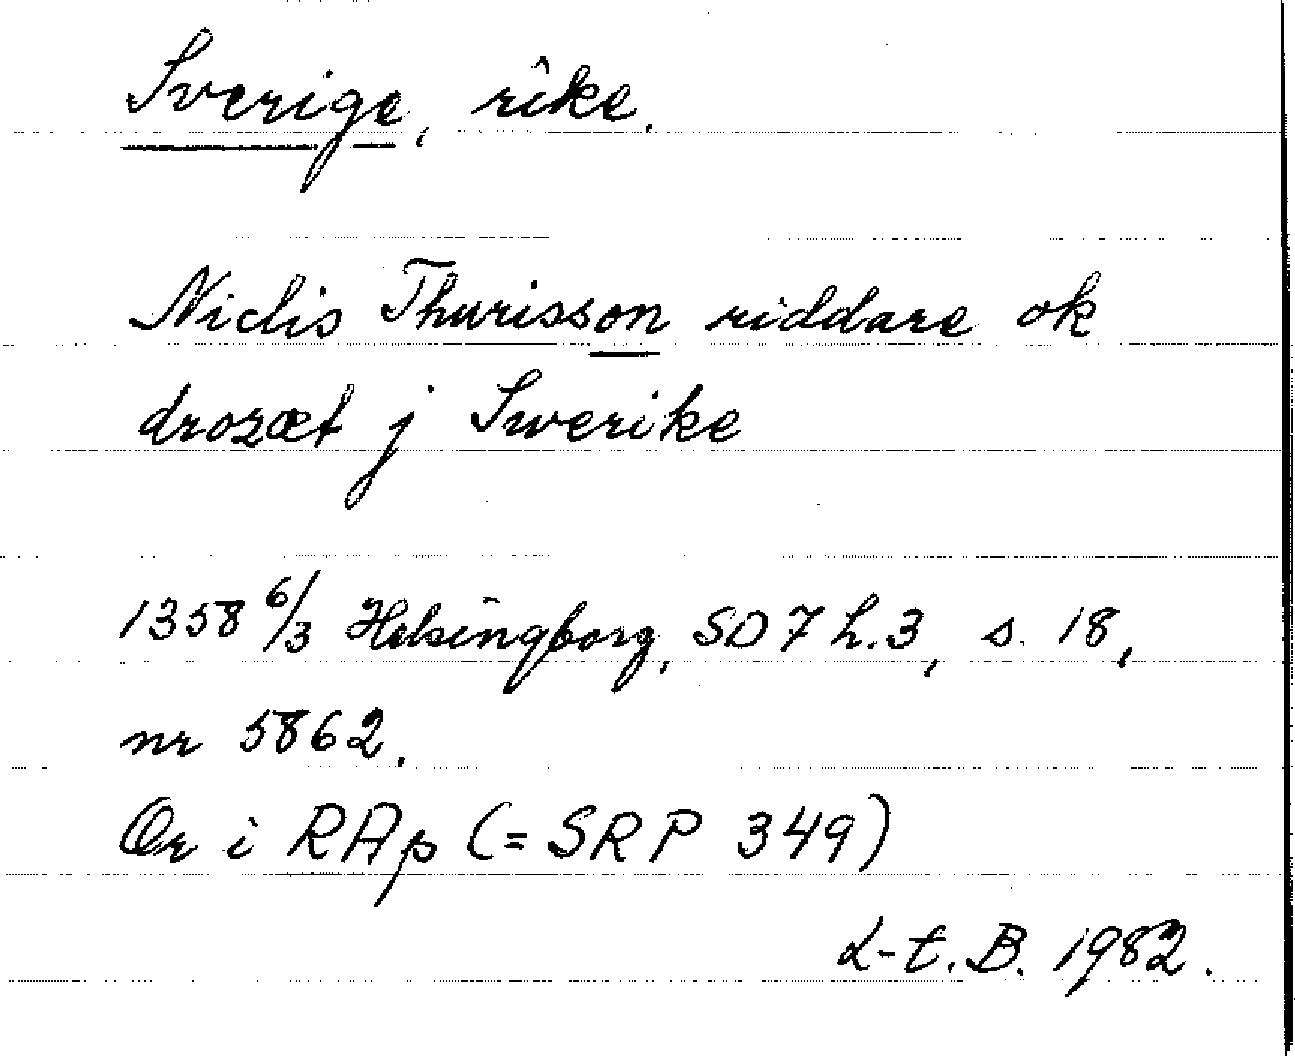 Sverige, rike.
Niclis Thurisson riddare ok
drozæt j Swerike
1358 6/3 Helsingborg, SD 7 h.3, s. 18,
nr 5862.
Or i RAp (= SRP 349)
L-t. B. 1982.